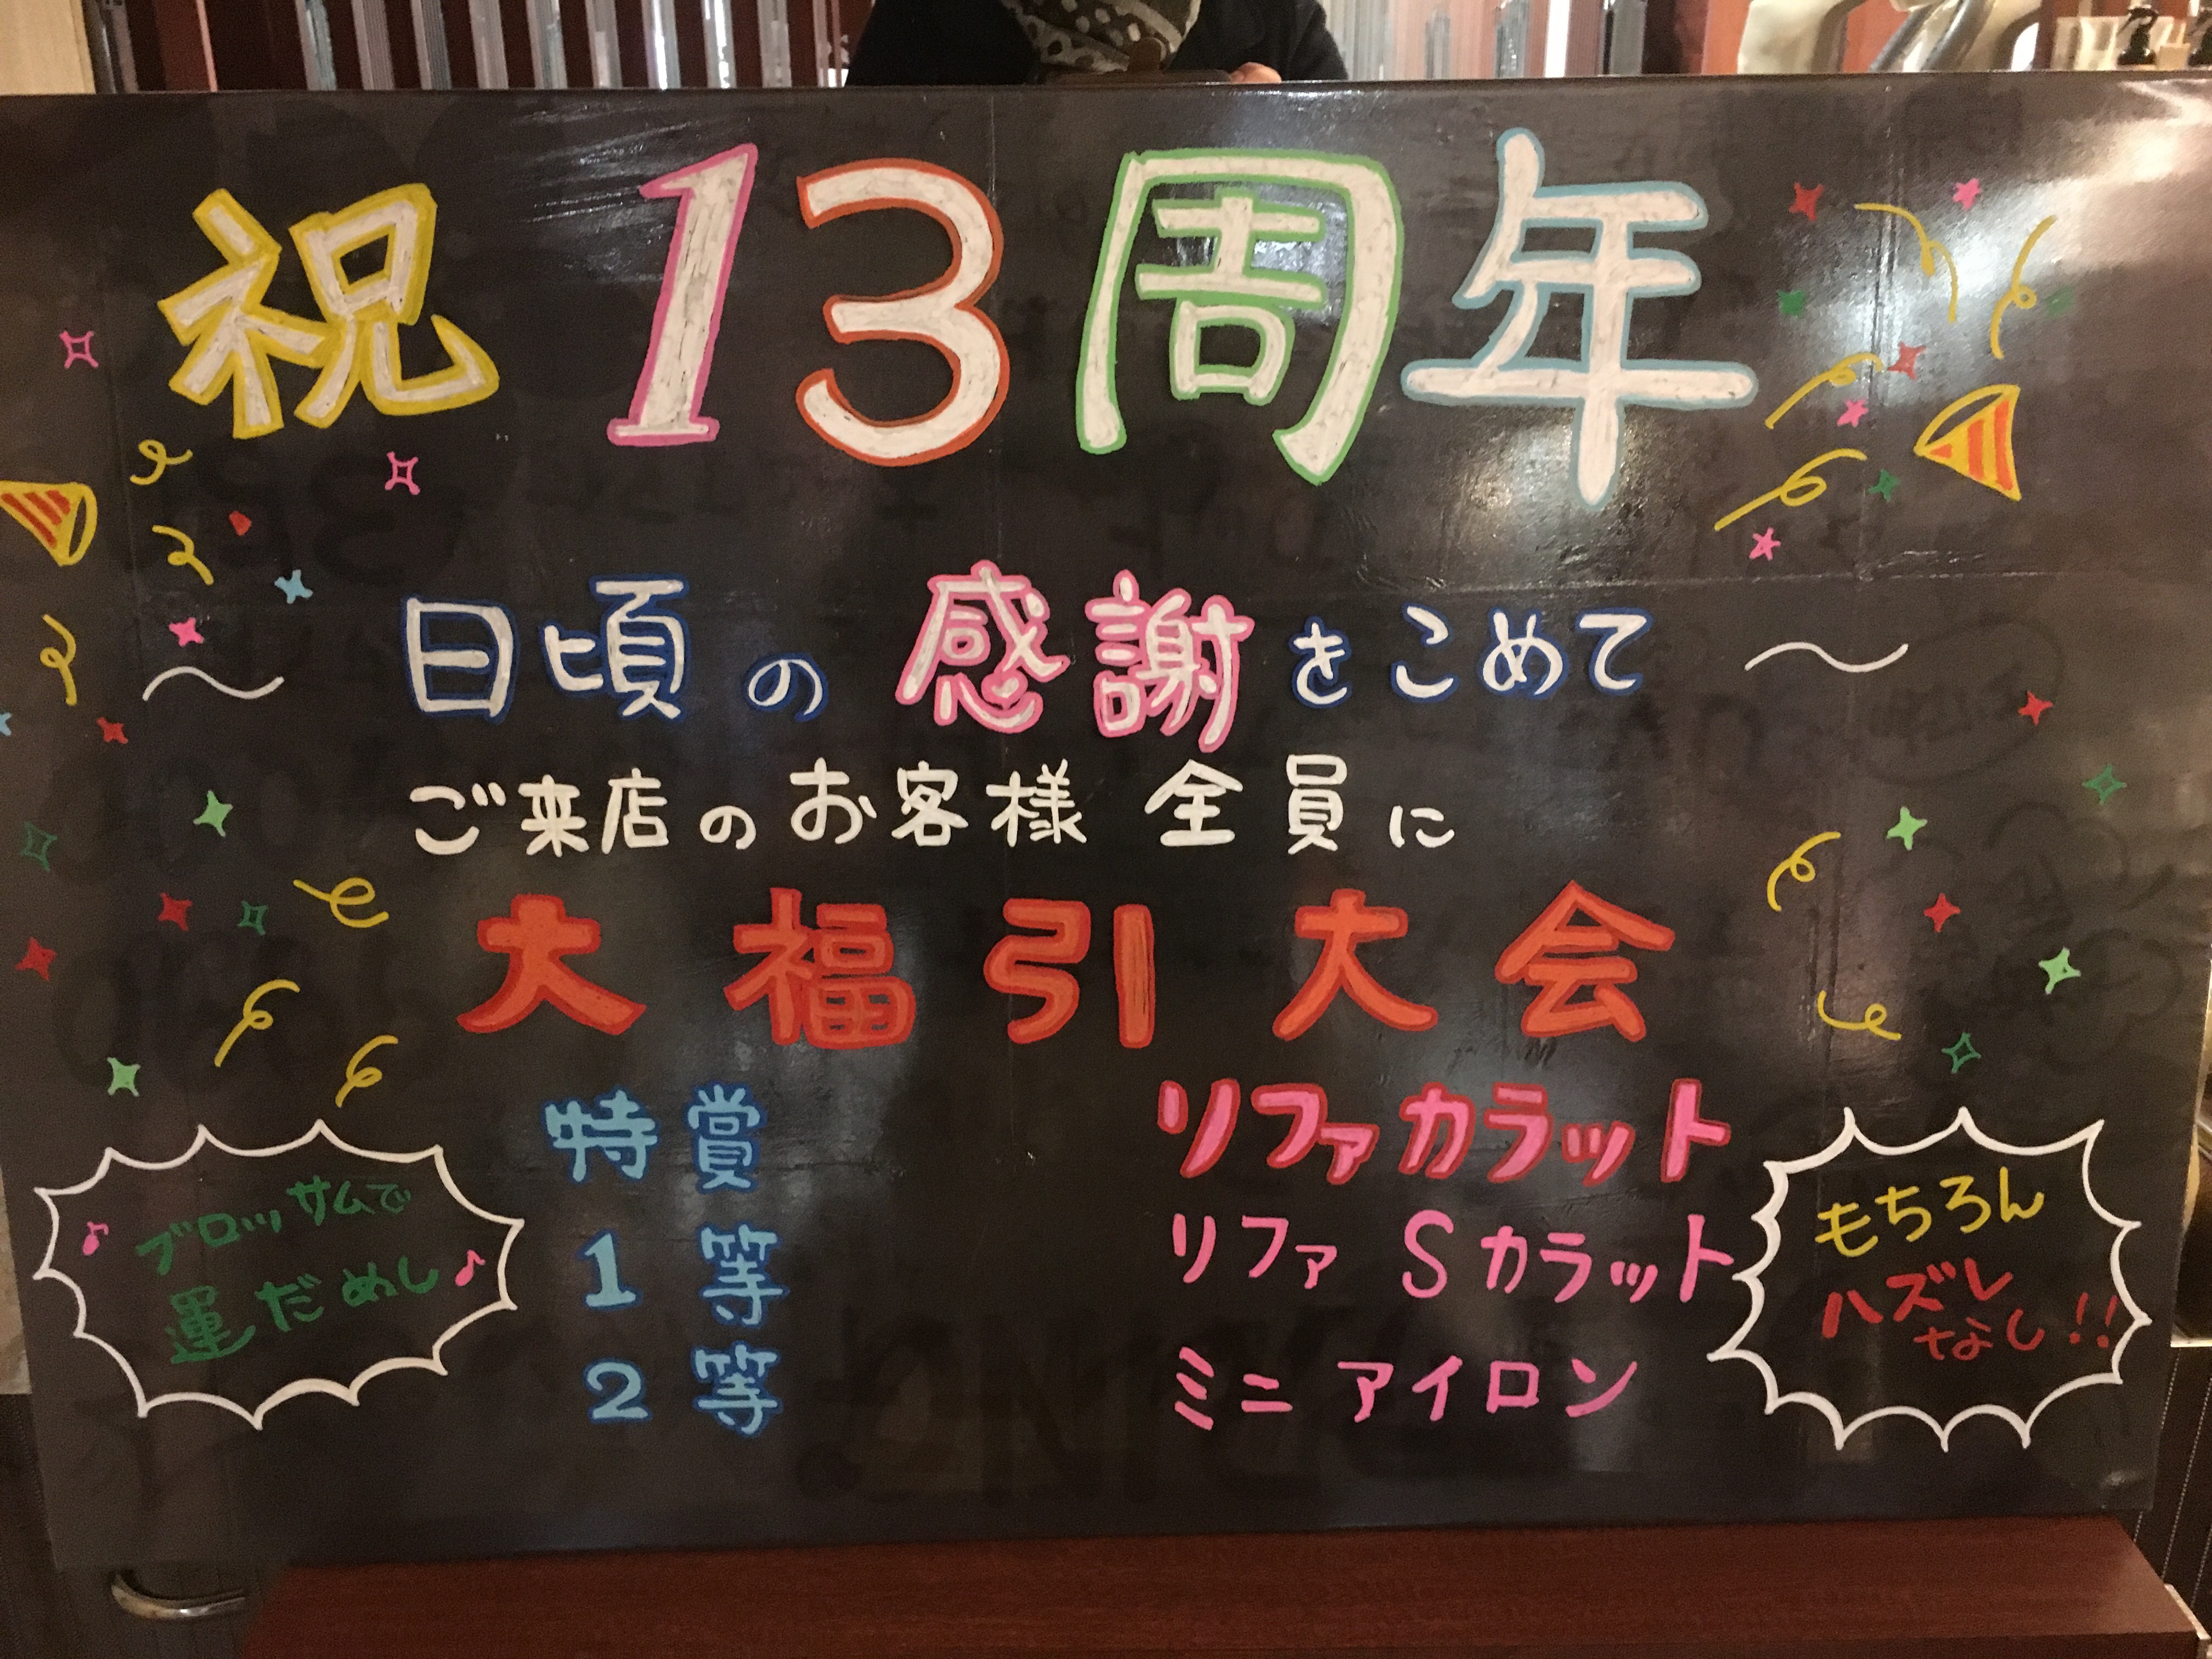 祝 13周年
〜 日頃の感謝をこめて 〜
ご来店のお客様 全員に
大福引大会
特賞 リファカラット
1等 リファ Sカラット
2等 ミニアイロン
♪ブロッサムで
運だめし♪
もちろん
ハズレ
なし!!